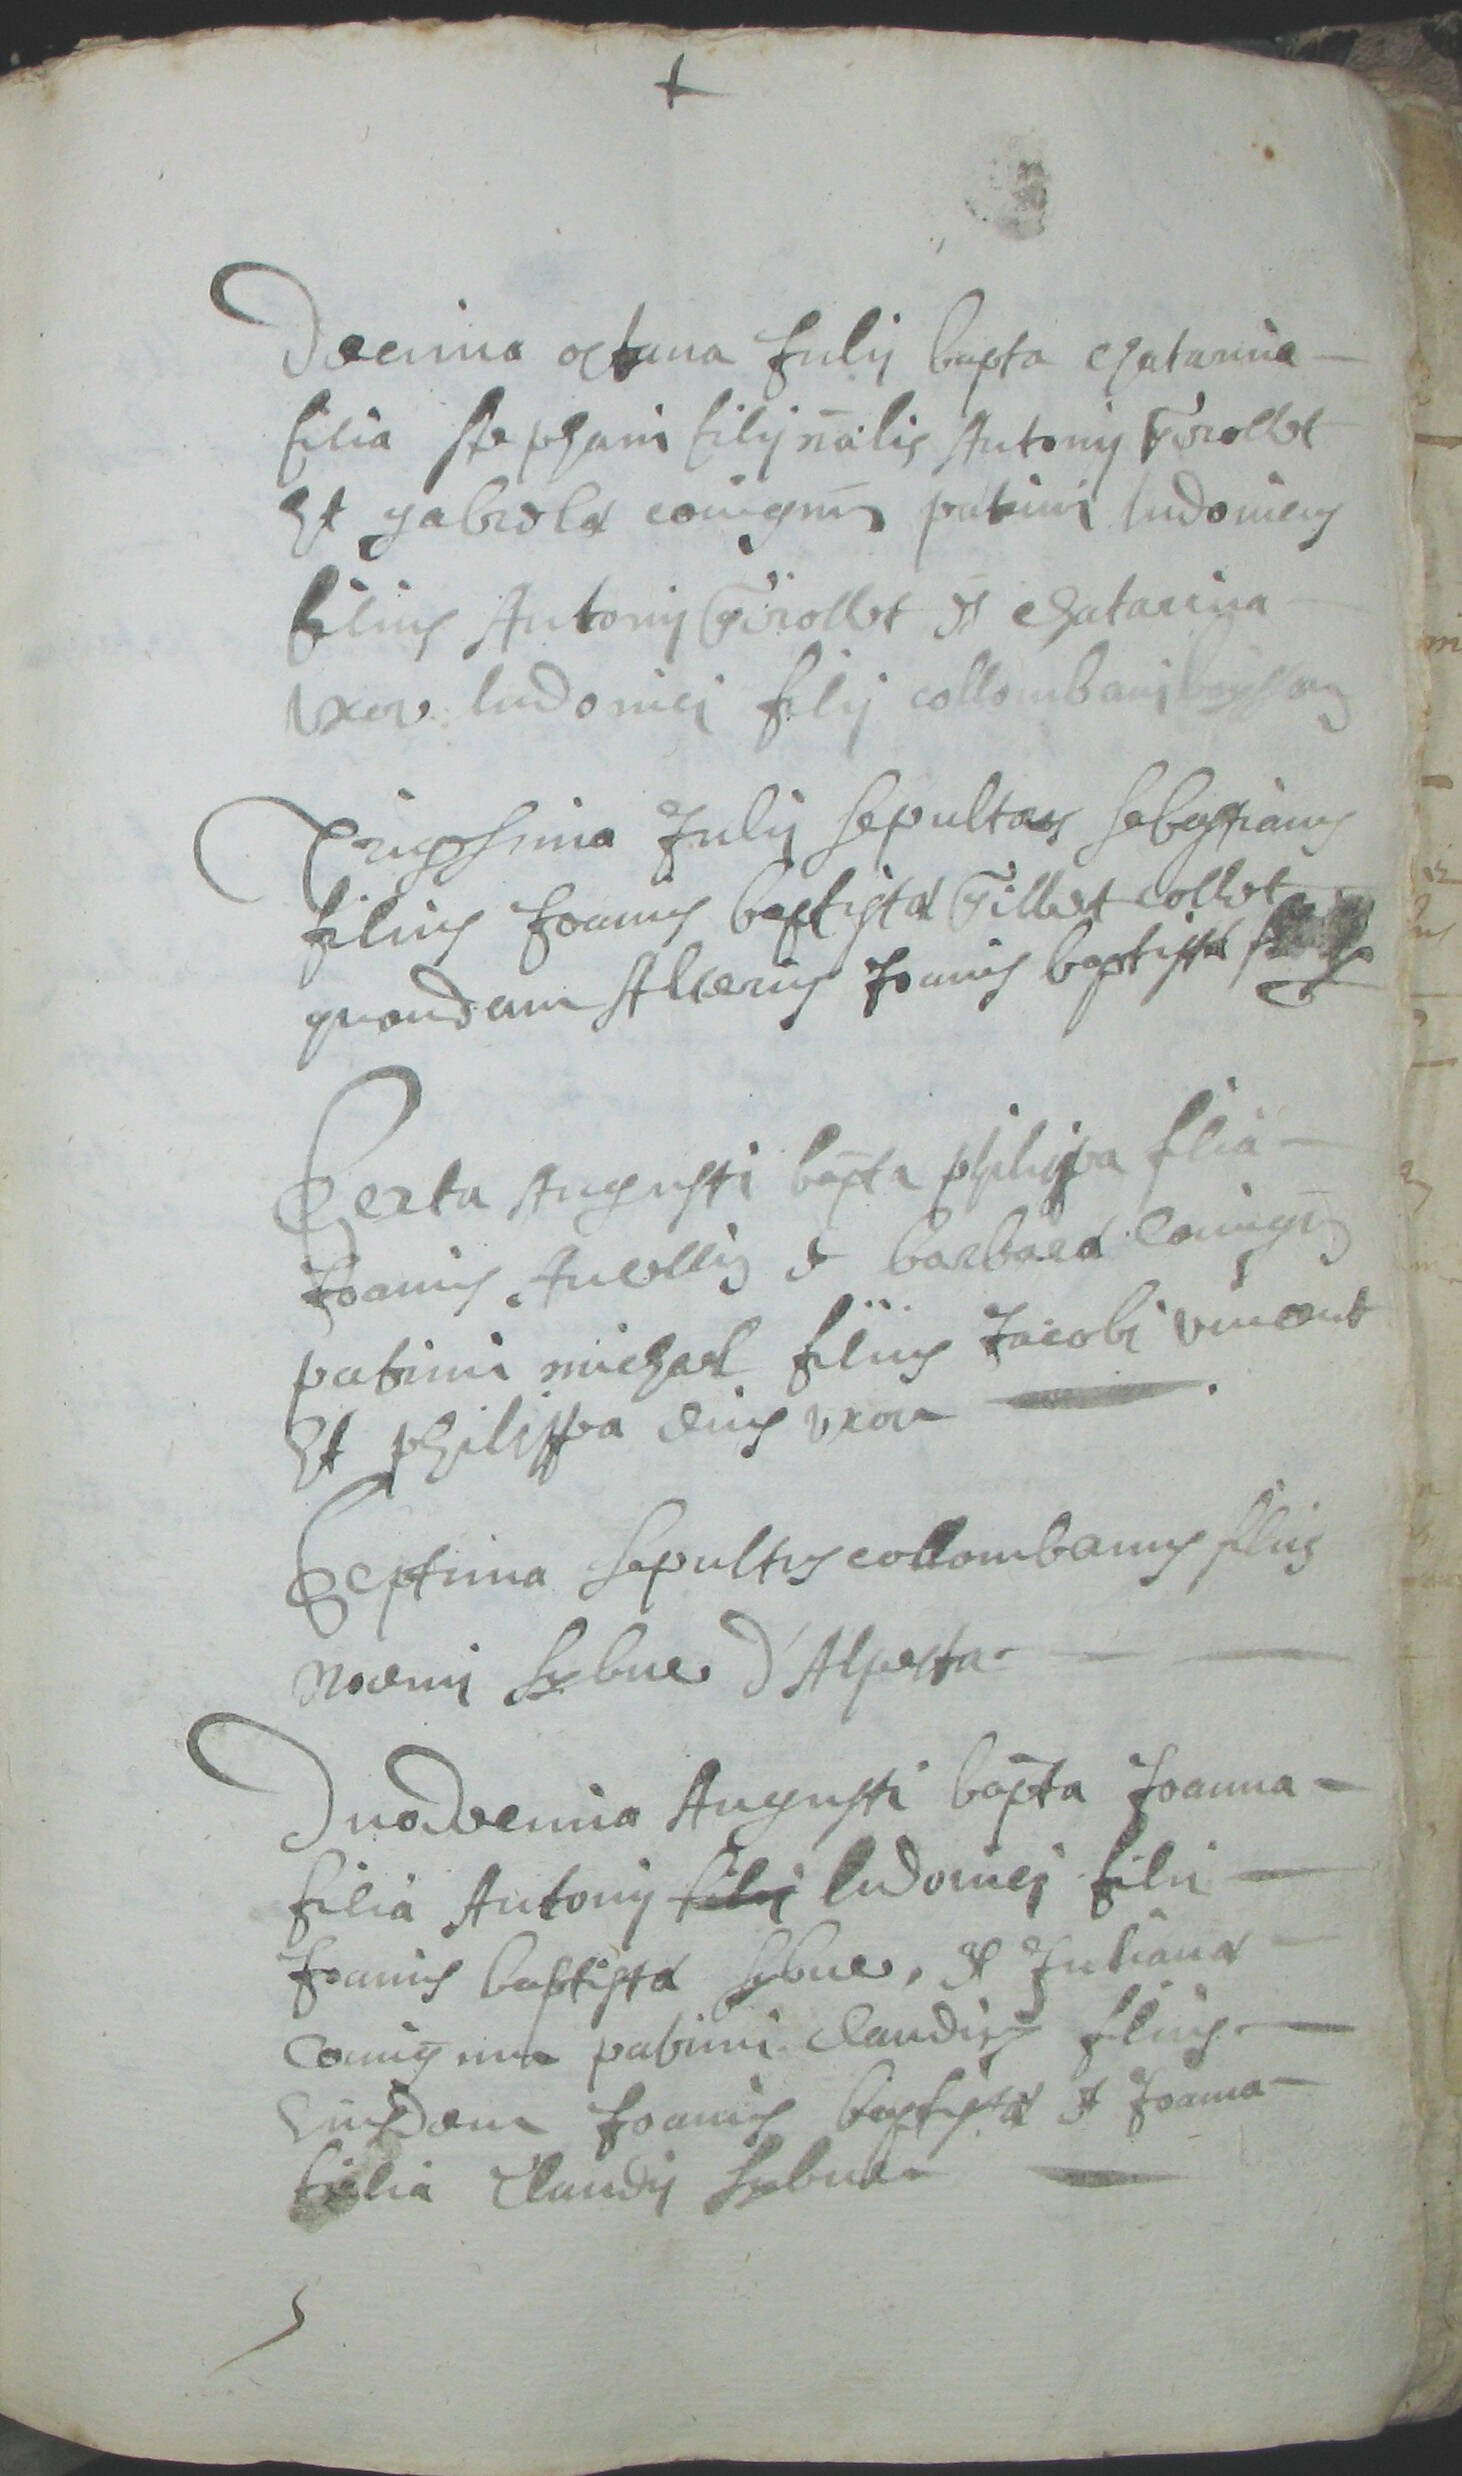 +
Decima octaua Julij bapta Chatarina
filia stephani filij nãlis Antonij Girollet
Et gabrielæ coniugum patrini ludouicus
filius Antonij Girollet Et Chatarina
vxor ludouici filij collombani
Trigessima Julij sepultus sebastianus
filius Joanis baptistæ Gillet collet
quondam Alterius Joanis baptistæ
Sexta Augusti bapta philippa filia
Joanis Ancellis et barbaræ Coniugũ
patrini michael filius Jacobi vincent
Et philippa eius vxor
Septima sepultus collombanus filius
noemi sybue d'Alpetta
Duodecima Augusti bapta Joanna
filia Antonij filij ludouici filii
Joanis baptistæ sybue, Et Julianæ
Coniugum patrini Claudius filius
Eiusdem Joanis baptistæ Et Joanna
filia Claudij sybue